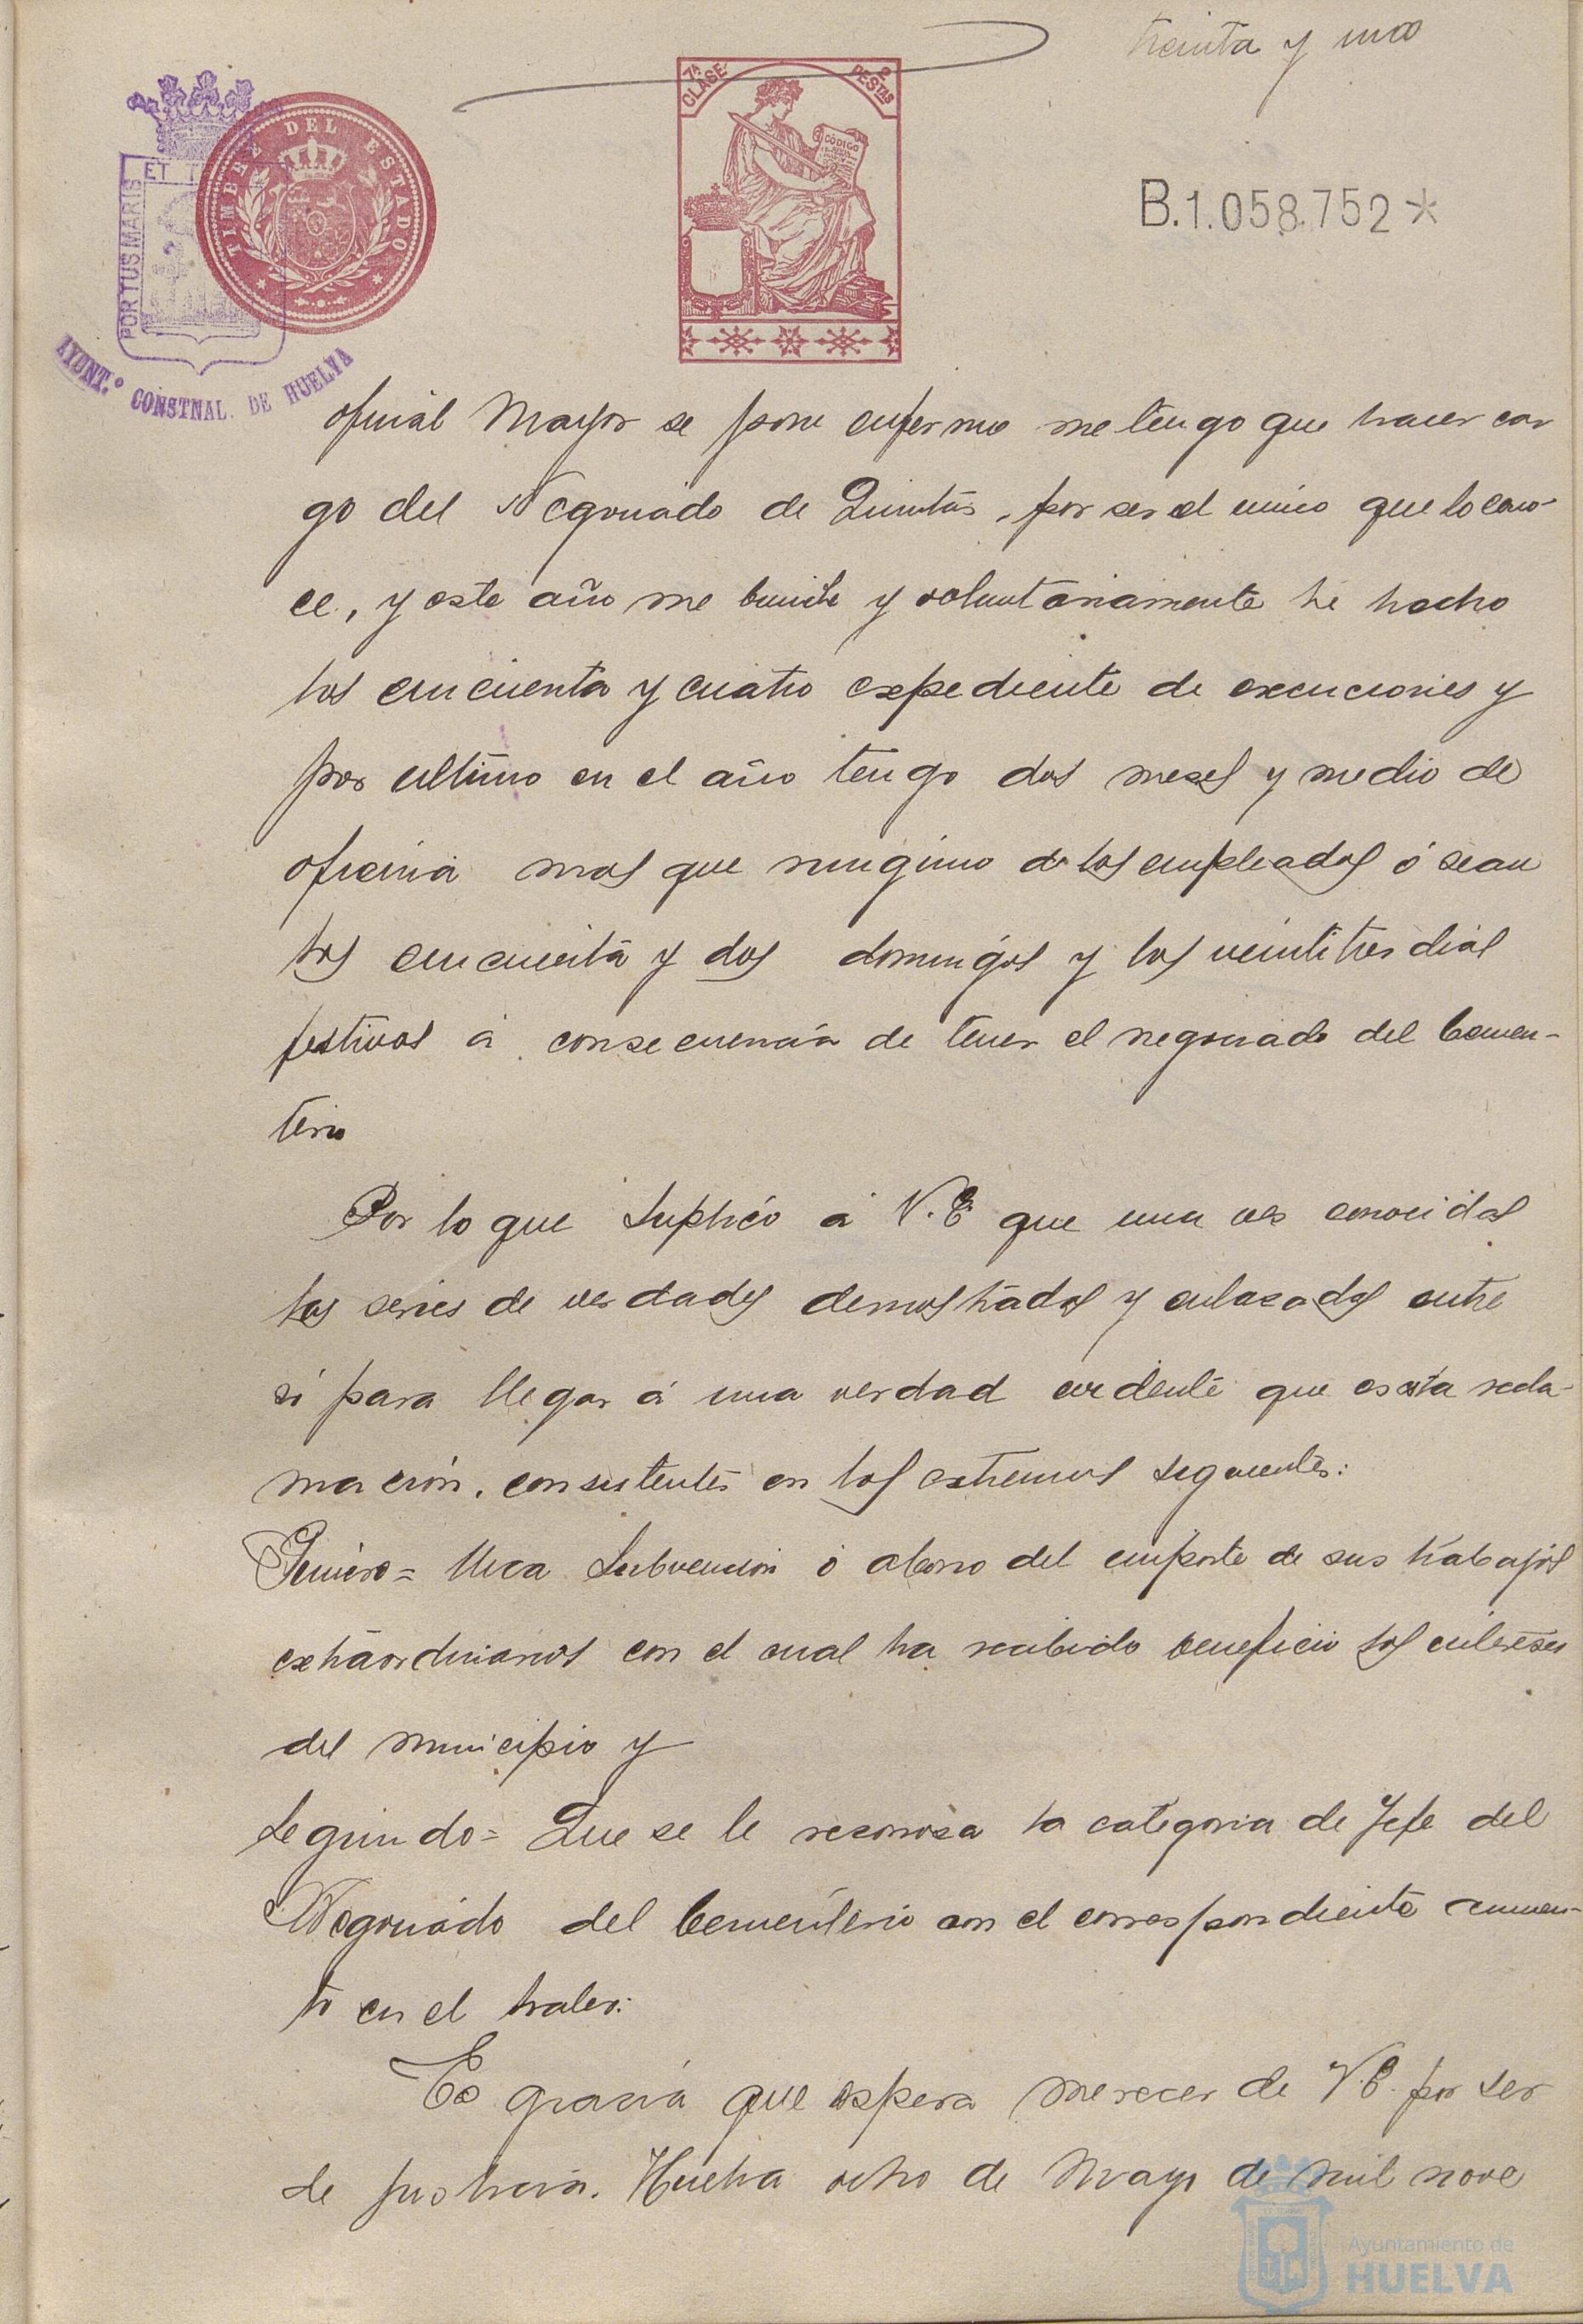 treinta y uno
7ª CLASE
2 PESTAS
CÓDIGO
TIMBRE DEL ESTADO
PORTUS MARIS
ET T
AYUNT.º CONSTNAL. DE HUELVA
B.1.058.752*
oficial Mayor se pone enfermo me tengo que hacer car
go del Negociado de Quintas, por ser el unico que lo cono-
ce, y este año me brinde y voluntariamente he hecho
los cincuenta y cuatro expediente de execuciones y
por ultimo en el año tengo dos meses y medio de
oficina mas que ninguno de los empleados ó sean
los cincuenta y dos domingos y los veintitres dias
festivos á consecuencia de tener el negociado del Cemen-
terio
Por lo que Suplico á V.E que una ves conocidas
las series de verdades demostradas y enlasadas entre
si para llegar á una verdad evidente que es esta recla-
mación, consistentes en los extremos siguientes:
Primero= Una Subvención ó abono del importe de sus trabajos
extraordinarios con el cual ha recibido beneficio los intereses
del municipio y
Segundo= Que se le reconosca la categoria de Jefe del
Negociado del Cementerio con el correspondiente aumen-
to en el haber:
Es gracia que espera merecer de V.E. por ser
de justicia. Huelva ocho de Mayo de mil nove
Ayuntamiento de
HUELVA